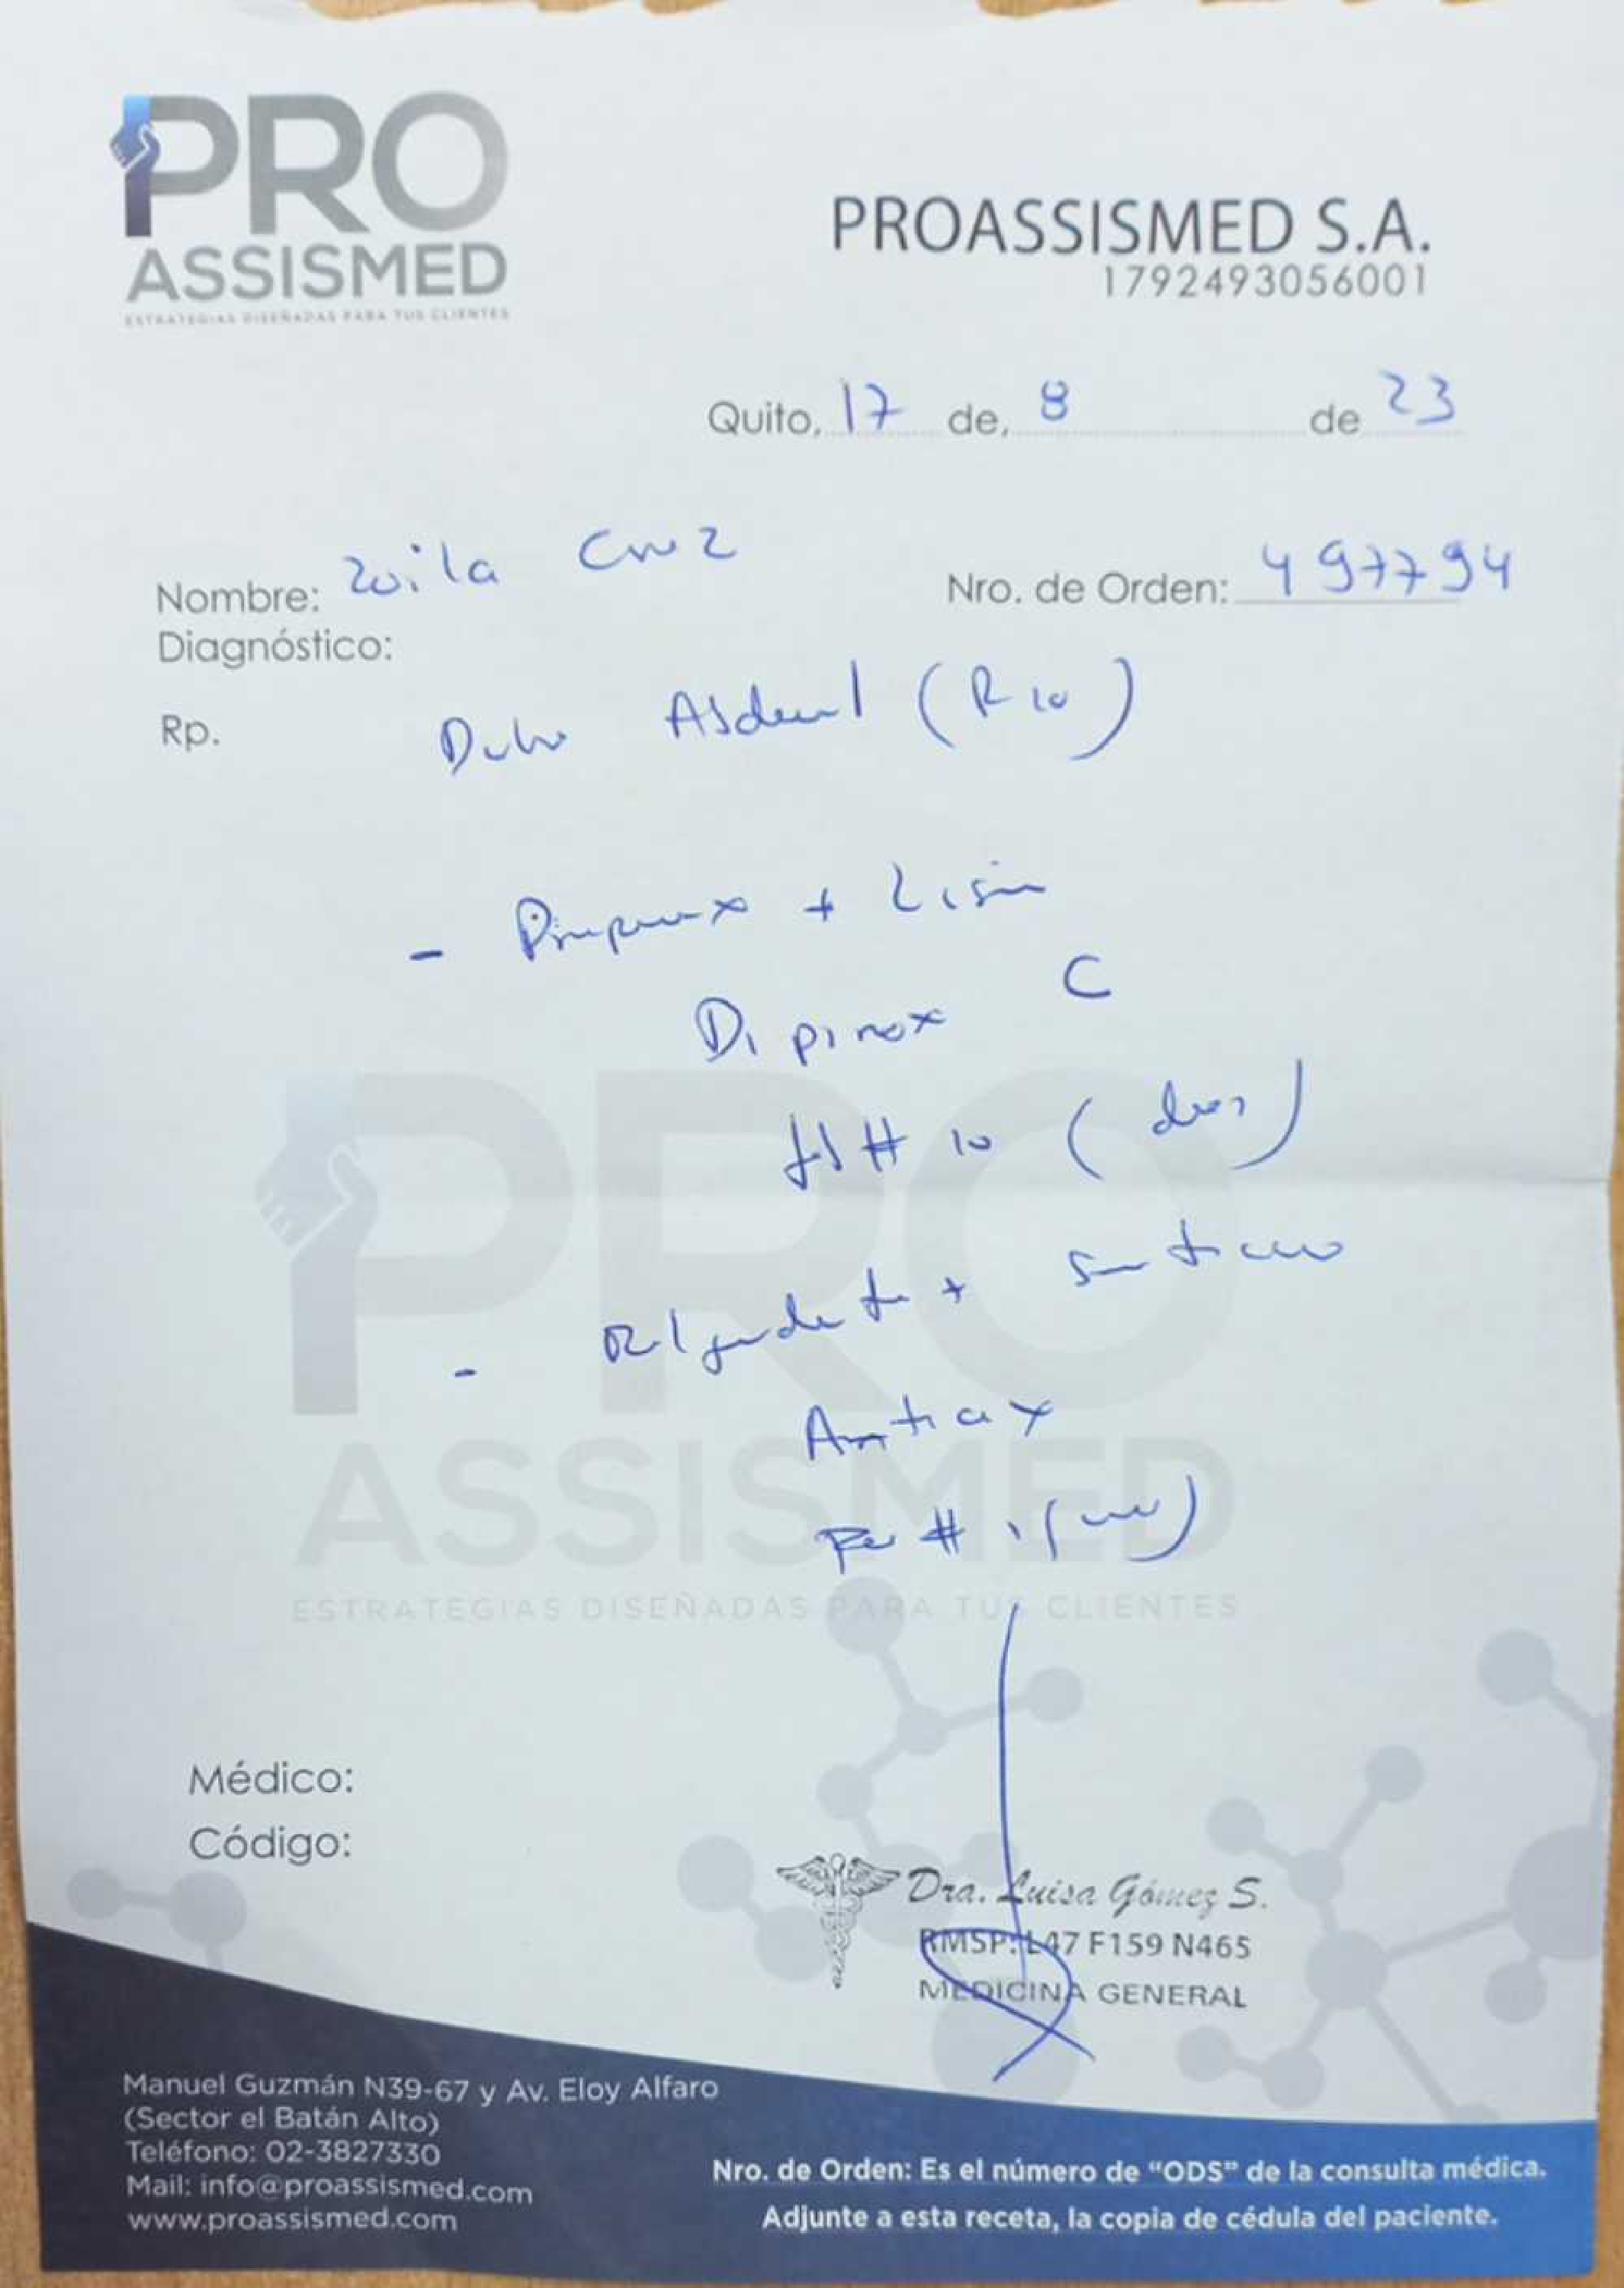 PRO
ASSISMED
ESTRATEGIAS DISEÑADAS PARA TUS CLIENTES
PROASSISMED S.A.
1792493056001
Quito, 17 de, 8 de 23
Nombre: Zoila Cruz Nro. de Orden: 497794
Diagnóstico:
Rp. (R10)
- +
Dipirox C
# 10 (diez)
- +
Antiax
# 1 (uno)
PRO
ASSISMED
ESTRATEGIAS DISEÑADAS PARA TUS CLIENTES
Médico:
Código:
Dra. Luisa Gómez S.
RMSP: L47 F159 N465
MEDICINA GENERAL
Manuel Guzmán N39-67 y Av. Eloy Alfaro
(Sector el Batán Alto)
Teléfono: 02-3827330
Mail: info@proassismed.com
www.proassismed.com
Nro. de Orden: Es el número de "ODS" de la consulta médica.
Adjunte a esta receta, la copia de cédula del paciente.